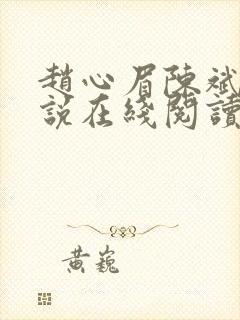 趙心眉陳斌
說在綫閱讀
黃巍